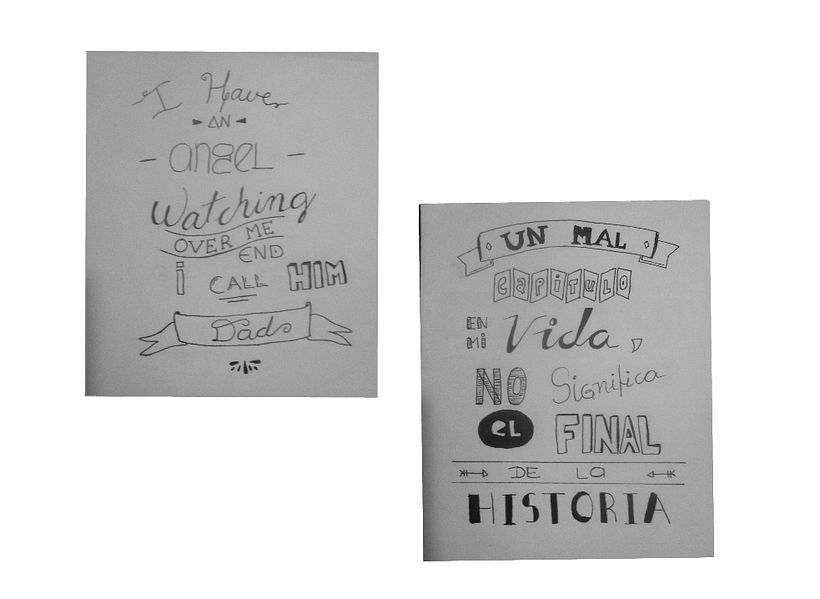 I Have
AN
- angel -
Watching
OVER ME
END
I CALL HIM
Dads
UN MAL
CAPiTULO
EN
Mi Vida,
NO Significa
eL FINAL
DE LA
HISTORIA